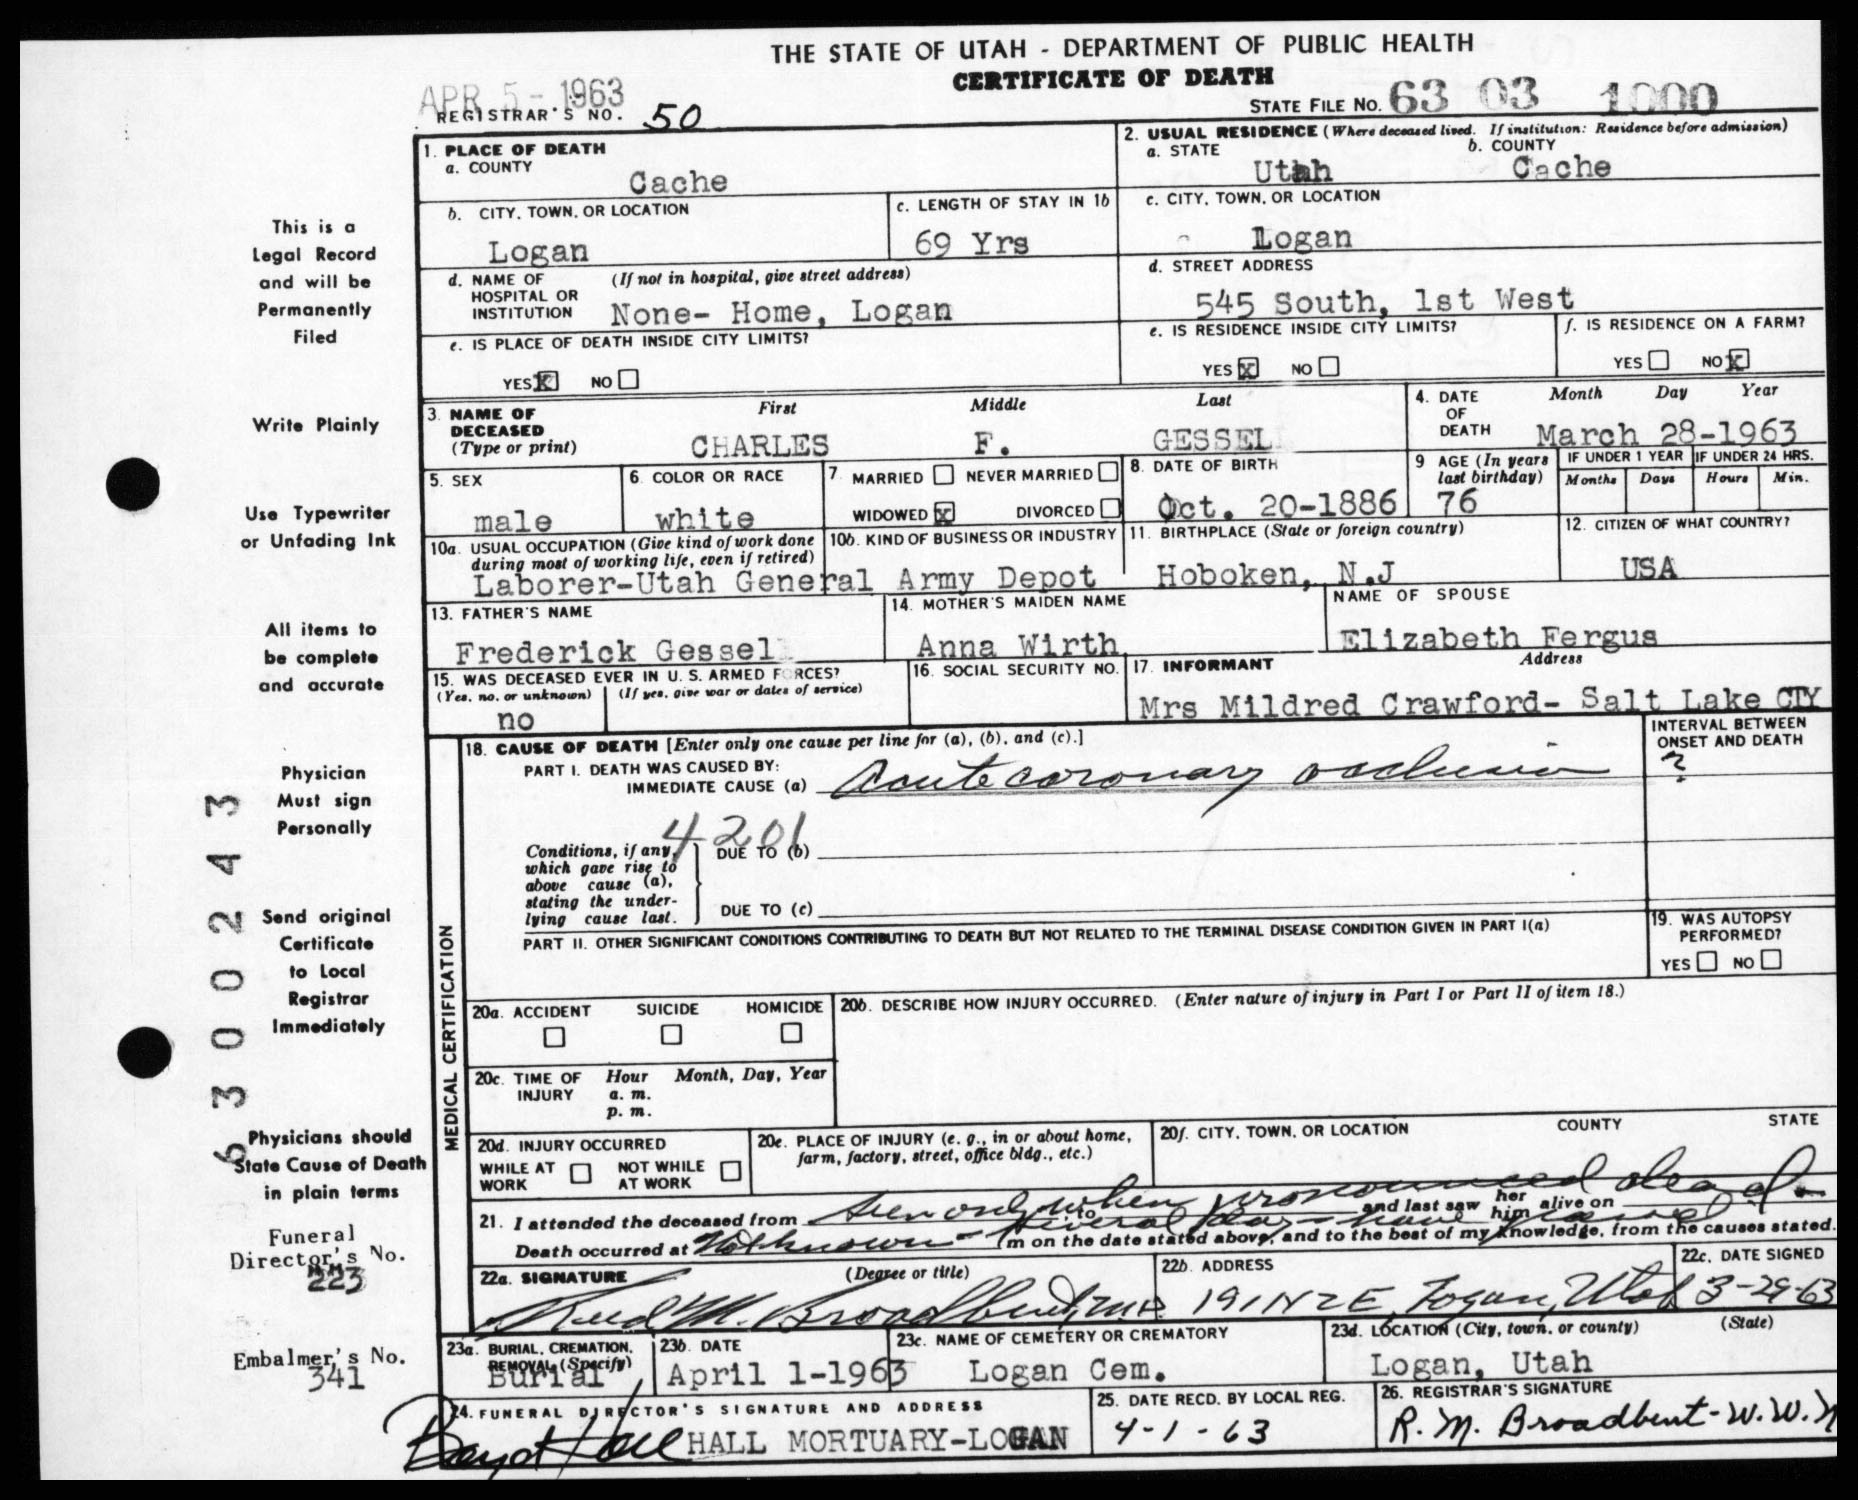 THE STATE OF UTAH - DEPARTMENT OF PUBLIC HEALTH
CERTIFICATE OF DEATH
APR 5 - 1963
REGISTRAR'S NO. 50
STATE FILE NO. 63 03 1000
This is a
Legal Record
and will be
Permanently
Filed
Write Plainly
Use Typewriter
or Unfading Ink
All items to
be complete
and accurate
Physician
Must sign
Personally
Send original
Certificate
to Local
Registrar
Immediately
Physicians should
State Cause of Death
in plain terms
6300243
Funeral
Director's No.
223
Embalmer's No.
341
1. PLACE OF DEATH
a. COUNTY
Cache
2. USUAL RESIDENCE (Where deceased lived. If institution: Residence before admission)
a. STATE
Utah
b. COUNTY
Cache
b. CITY, TOWN, OR LOCATION
Logan
c. LENGTH OF STAY IN 1b
69 Yrs
c. CITY, TOWN, OR LOCATION
Logan
d. NAME OF HOSPITAL OR INSTITUTION
(If not in hospital, give street address)
None- Home, Logan
d. STREET ADDRESS
545 South, 1st West
e. IS PLACE OF DEATH INSIDE CITY LIMITS?
YES X NO
e. IS RESIDENCE INSIDE CITY LIMITS?
YES X NO
f. IS RESIDENCE ON A FARM?
YES NO X
3. NAME OF DECEASED
(Type or print)
First Middle Last
CHARLES F. GESSEL
4. DATE OF DEATH
Month Day Year
March 28-1963
5. SEX
male
6. COLOR OR RACE
white
7. MARRIED NEVER MARRIED
WIDOWED X DIVORCED
8. DATE OF BIRTH
Oct. 20-1886
9 AGE (In years last birthday)
76
IF UNDER 1 YEAR
Months Days
IF UNDER 24 HRS.
Hours Min.
10a. USUAL OCCUPATION (Give kind of work done during most of working life, even if retired)
10b. KIND OF BUSINESS OR INDUSTRY
Laborer-Utah General Army Depot
11. BIRTHPLACE (State or foreign country)
Hoboken, N.J
12. CITIZEN OF WHAT COUNTRY?
USA
13. FATHER'S NAME
Frederick Gessel
14. MOTHER'S MAIDEN NAME
Anna Wirth
NAME OF SPOUSE
Elizabeth Fergus
15. WAS DECEASED EVER IN U. S. ARMED FORCES?
(Yes, no, or unknown) (If yes, give war or dates of service)
no
16. SOCIAL SECURITY NO.
17. INFORMANT Address
Mrs Mildred Crawford- Salt Lake CTY
MEDICAL CERTIFICATION
18. CAUSE OF DEATH [Enter only one cause per line for (a), (b), and (c).]
PART I. DEATH WAS CAUSED BY:
IMMEDIATE CAUSE (a) Acute coronary occlusion
INTERVAL BETWEEN ONSET AND DEATH
?
4201
Conditions, if any, which gave rise to above cause (a), stating the underlying cause last.
DUE TO (b)
DUE TO (c)
PART II. OTHER SIGNIFICANT CONDITIONS CONTRIBUTING TO DEATH BUT NOT RELATED TO THE TERMINAL DISEASE CONDITION GIVEN IN PART I(a)
19. WAS AUTOPSY PERFORMED?
YES NO
20a. ACCIDENT SUICIDE HOMICIDE
20b. DESCRIBE HOW INJURY OCCURRED. (Enter nature of injury in Part I or Part II of item 18.)
20c. TIME OF INJURY
Hour Month, Day, Year
a. m.
p. m.
20d. INJURY OCCURRED
WHILE AT WORK NOT WHILE AT WORK
20e. PLACE OF INJURY (e. g., in or about home, farm, factory, street, office bldg., etc.)
20f. CITY, TOWN, OR LOCATION COUNTY STATE
Seen only when pronounced dead.
21. I attended the deceased from to and last saw her him alive on
several days have passed
Death occurred at Not known m on the date stated above, and to the best of my knowledge, from the causes stated.
22a. SIGNATURE (Degree or title)
Reed M. Broadbent, M.D.
22b. ADDRESS
191 N 2 E, Logan, Utah
22c. DATE SIGNED
3-29-63
23a. BURIAL, CREMATION, REMOVAL (Specify)
Burial
23b. DATE
April 1-1963
23c. NAME OF CEMETERY OR CREMATORY
Logan Cem.
23d. LOCATION (City, town, or county) (State)
Logan, Utah
24. FUNERAL DIRECTOR'S SIGNATURE AND ADDRESS
Boyd Hall HALL MORTUARY-LOGAN
25. DATE RECD. BY LOCAL REG.
4-1-63
26. REGISTRAR'S SIGNATURE
R. M. Broadbent-W.W.